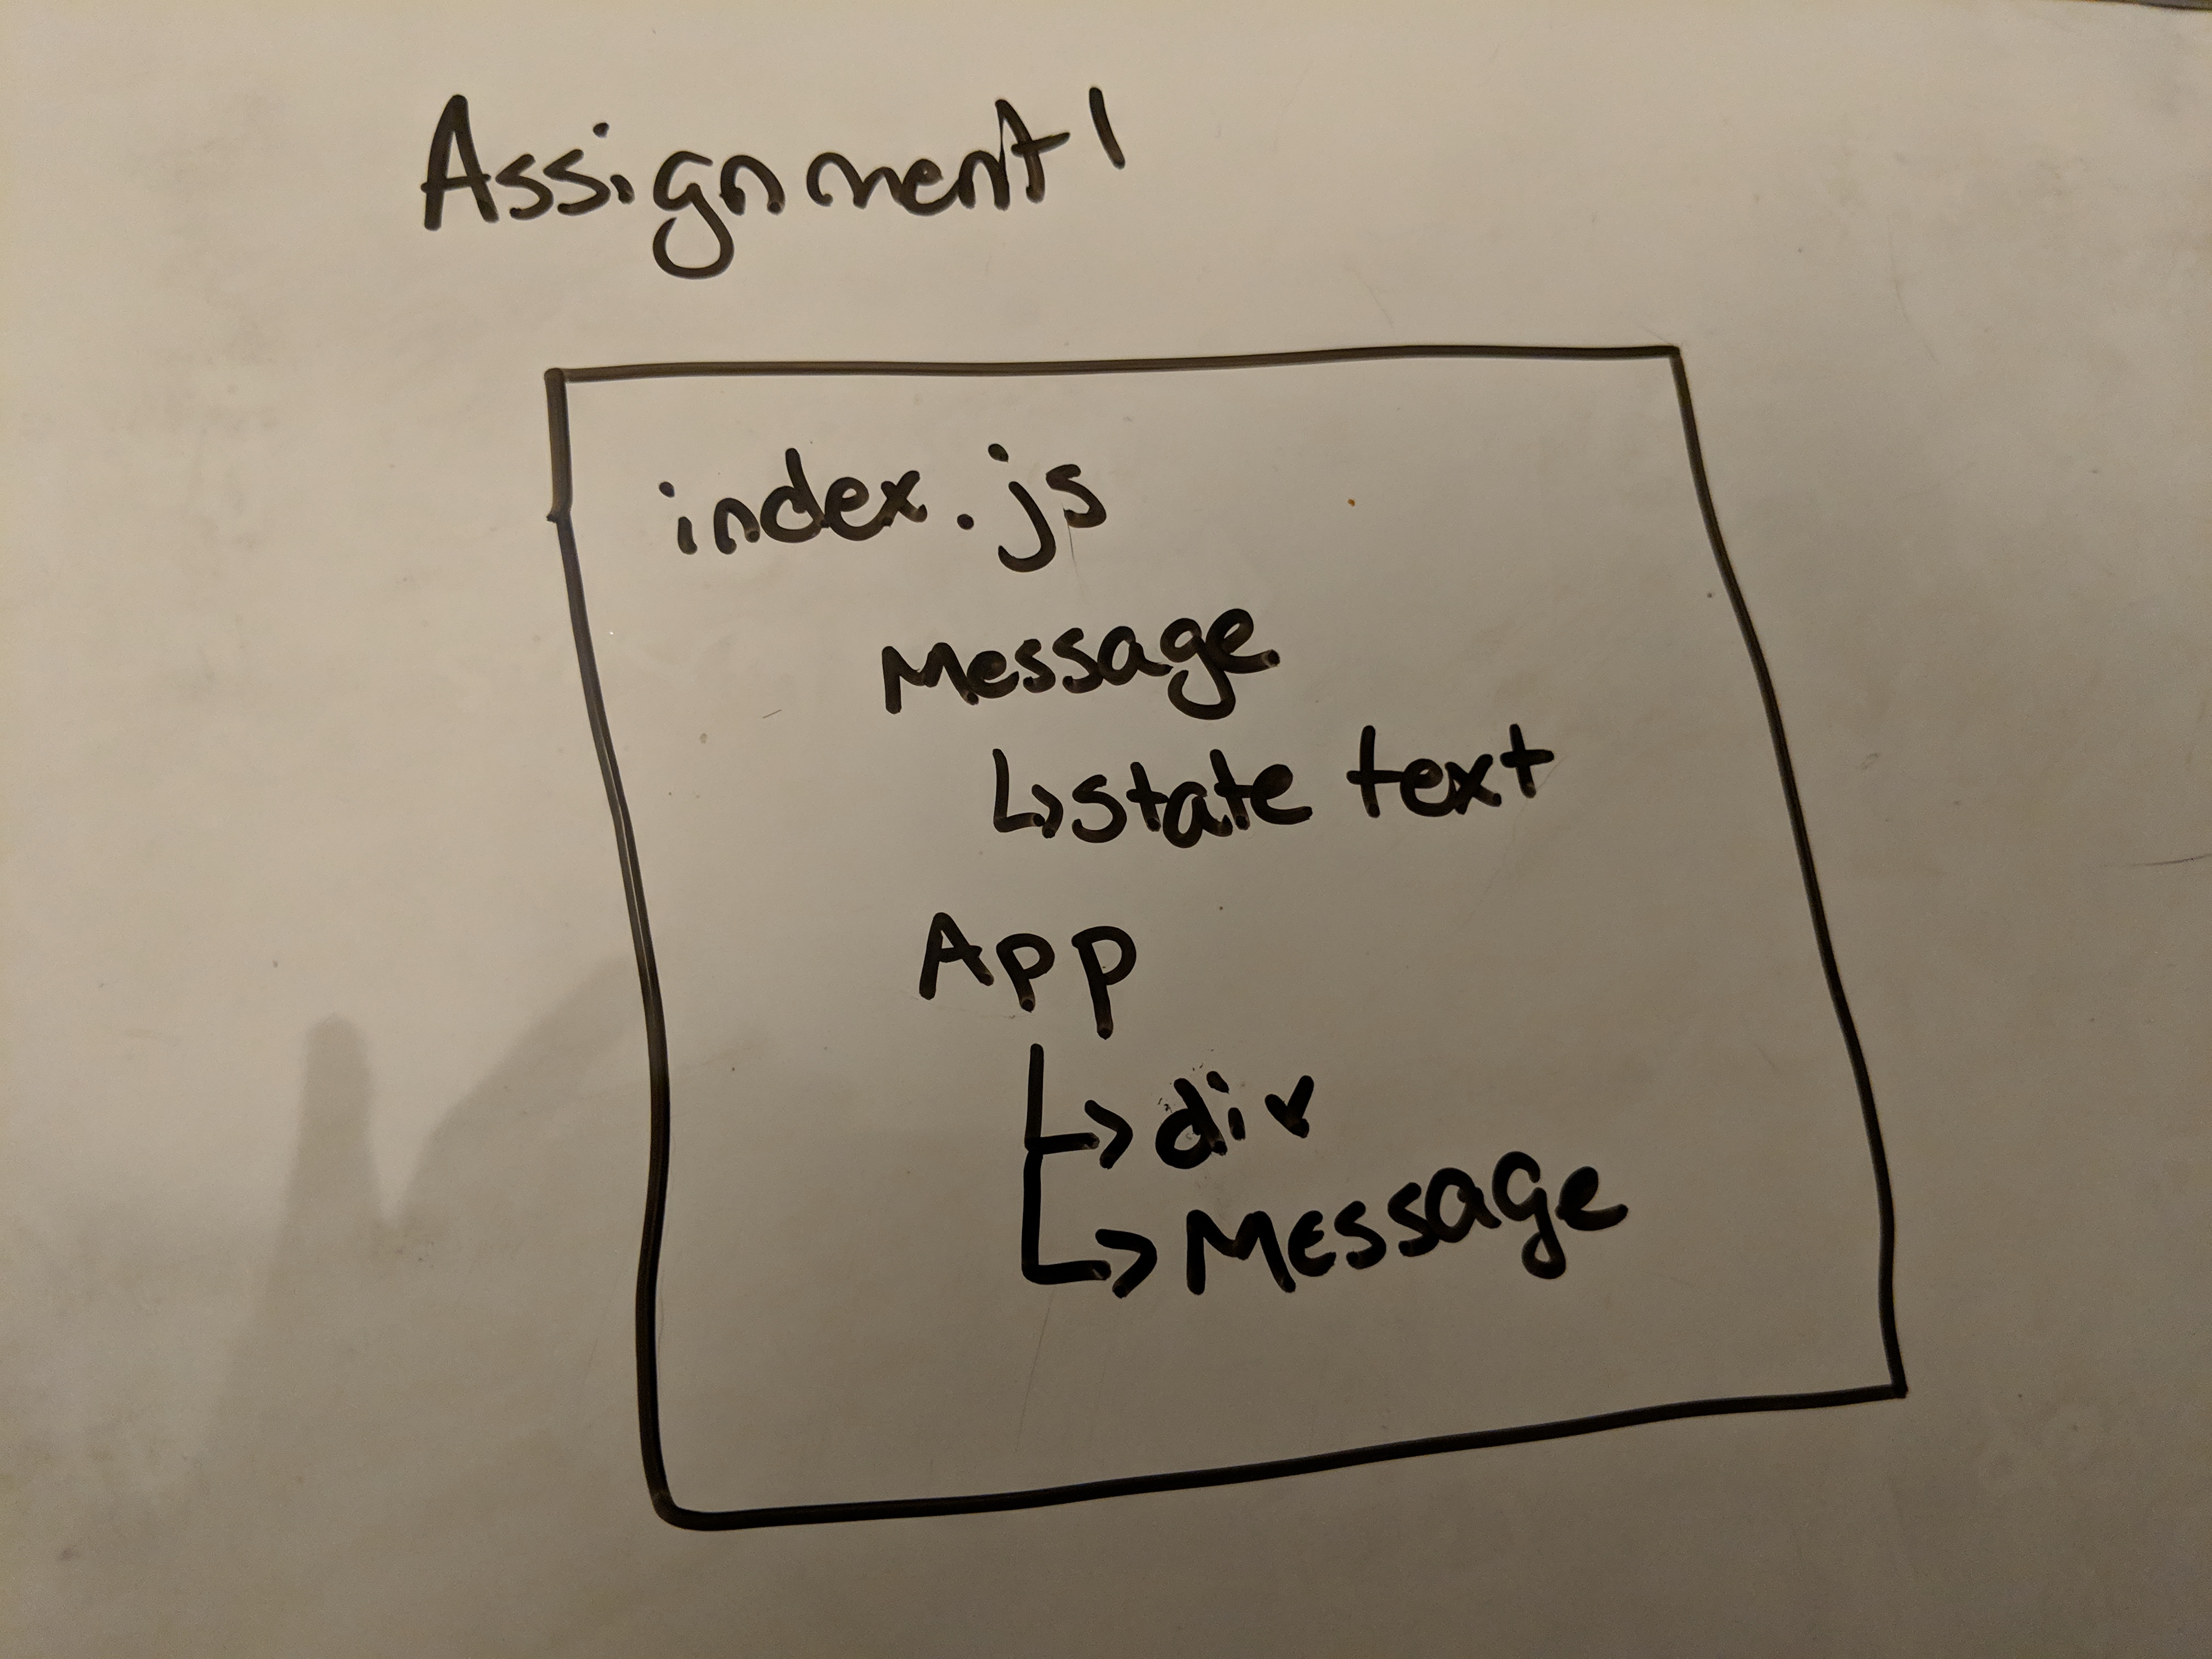 Assignment 1
index.js
Message
↳ state text
App
↳ div
↳ Message